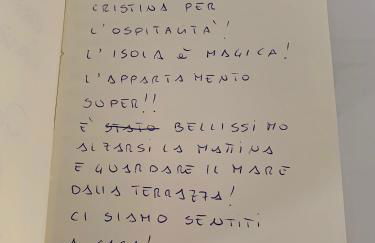 CRISTINA PER
L'OSPITALITÀ!
L'ISOLA È MAGICA!
L'APPARTAMENTO
SUPER!!
È STATO BELLISSIMO
ALZARSI LA MATTINA
E GUARDARE IL MARE
DALLA TERRAZZA!
CI SIAMO SENTITI
A CASA!